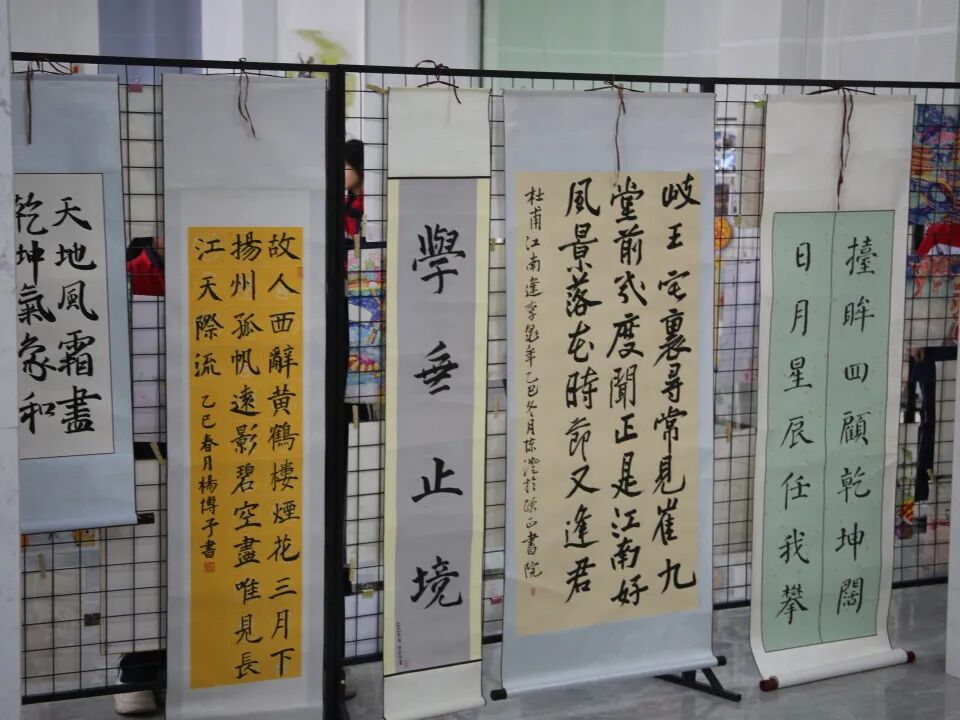 天地風霜盡
乾坤氣象和
故人西辭黃鶴樓煙花三月下
揚州孤帆遠影碧空盡唯見長
江天際流
乙巳春月楊博予書
學無止境
岐王宅裏尋常見崔九
堂前幾度聞正是江南好
風景落花時節又逢君
杜甫江南逢李龜年乙巳冬月陈澄於 正書院
擡眸四顧乾坤闊
日月星辰任我攀